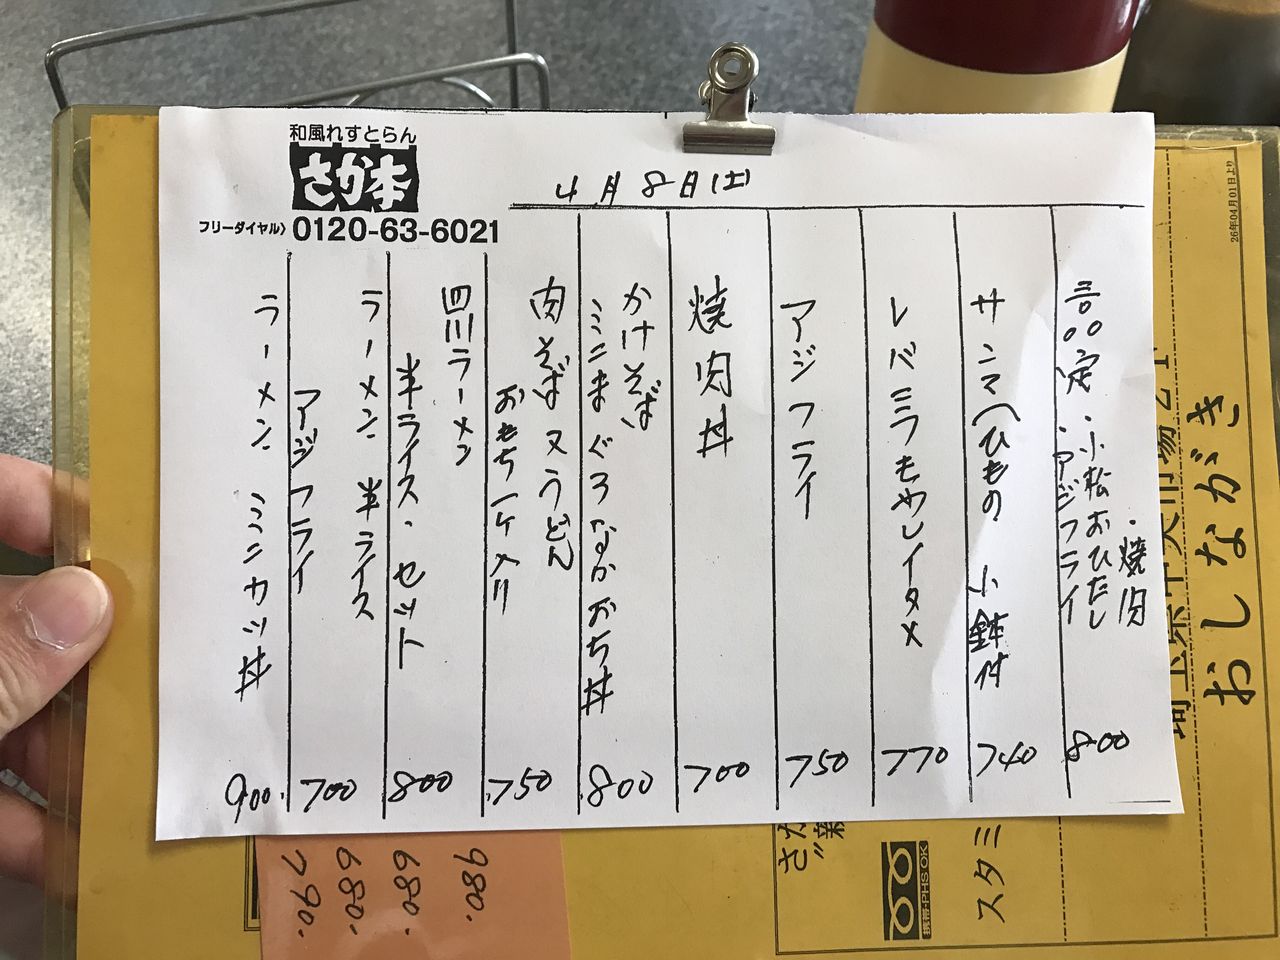 和風れすとらん
さか本
フリーダイヤル〉0120-63-6021
4月8日(土)
・焼肉
・小松おひたし
・アジフライ
定 800
サンマ(ひもの 小鉢付 740
レバニラもやしイタメ 770
アジフライ 750
焼肉丼 700
かけそば
ミニまぐろなかおち丼 800
肉そば又うどん
おもち一ケ入り 750
四川ラーメン
半ライス・セット 800
ラーメン 半ライス
アジフライ 700
ラーメン ミニカツ丼 900.
26年04月01日より
おしながき
スタミ
携帯・PHS OK
980.
680.
680.
790.